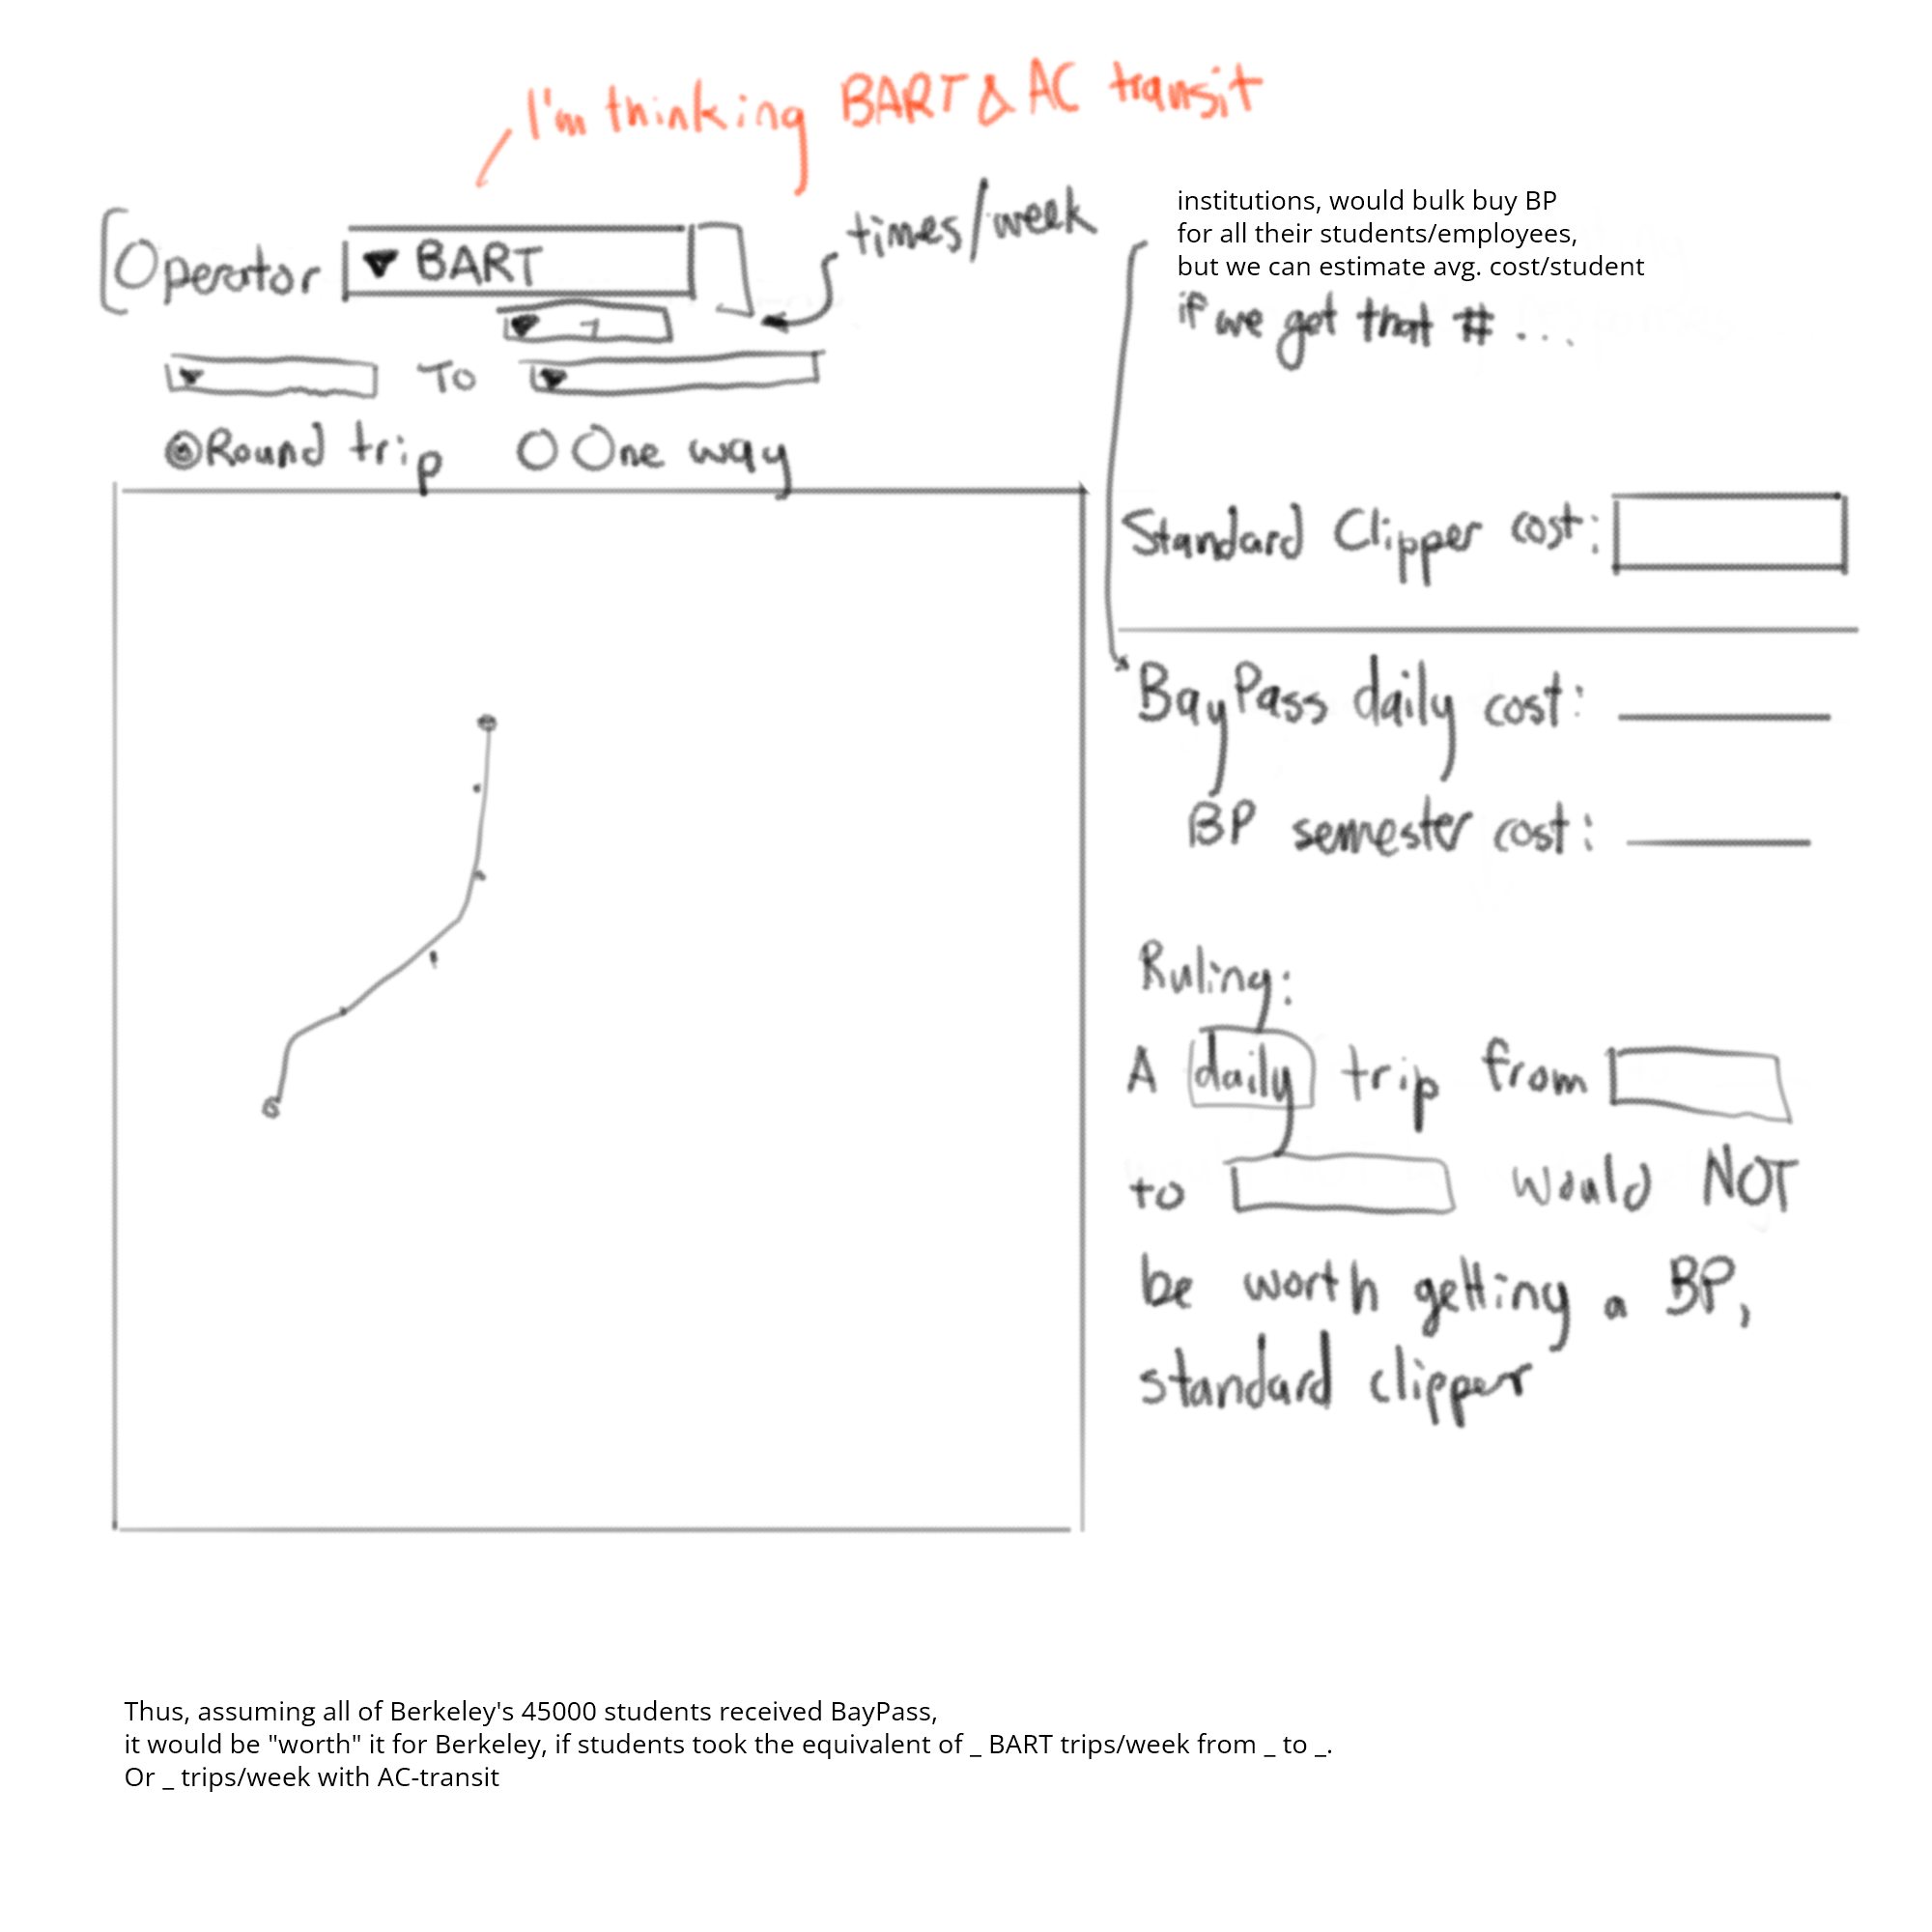 I'm thinking BART & AC transit
times/week
Operator BART
To
Round trip One way
institutions, would bulk buy BP
for all their students/employees,
but we can estimate avg. cost/student
if we get that # ...
Standard Clipper cost:
BayPass daily cost:
BP semester cost:
Ruling:
A daily trip from
to would NOT
be worth getting a BP,
standard clipper
Thus, assuming all of Berkeley's 45000 students received BayPass,
it would be "worth" it for Berkeley, if students took the equivalent of _ BART trips/week from _ to _.
Or _ trips/week with AC-transit